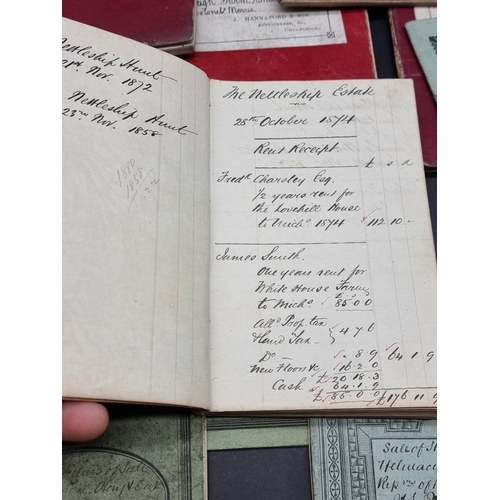 J. HANNAFORD & SON
Nettleship Hunt
21st Nov. 1872
Nettleship Hunt
23rd Nov. 1858
1880
1858
22
The Nettleship Estate
28th October 1874
Rent Receipt.
£ s d
Fredk. Charsley Esq.
1/2 years rent for
the Lovehill House
to Michs 1874 112 10 -
James Smith.
One years rent for
White House Farm
to Michs 85 0 0
Alld Prop. tax
& Land Tax } 4 7 6
Do 8 9 64 1 9
New Floors &c 16 2 0
£20 18 3
Cash 64 1 9
£85 0 0 £176 11 9
Sale of